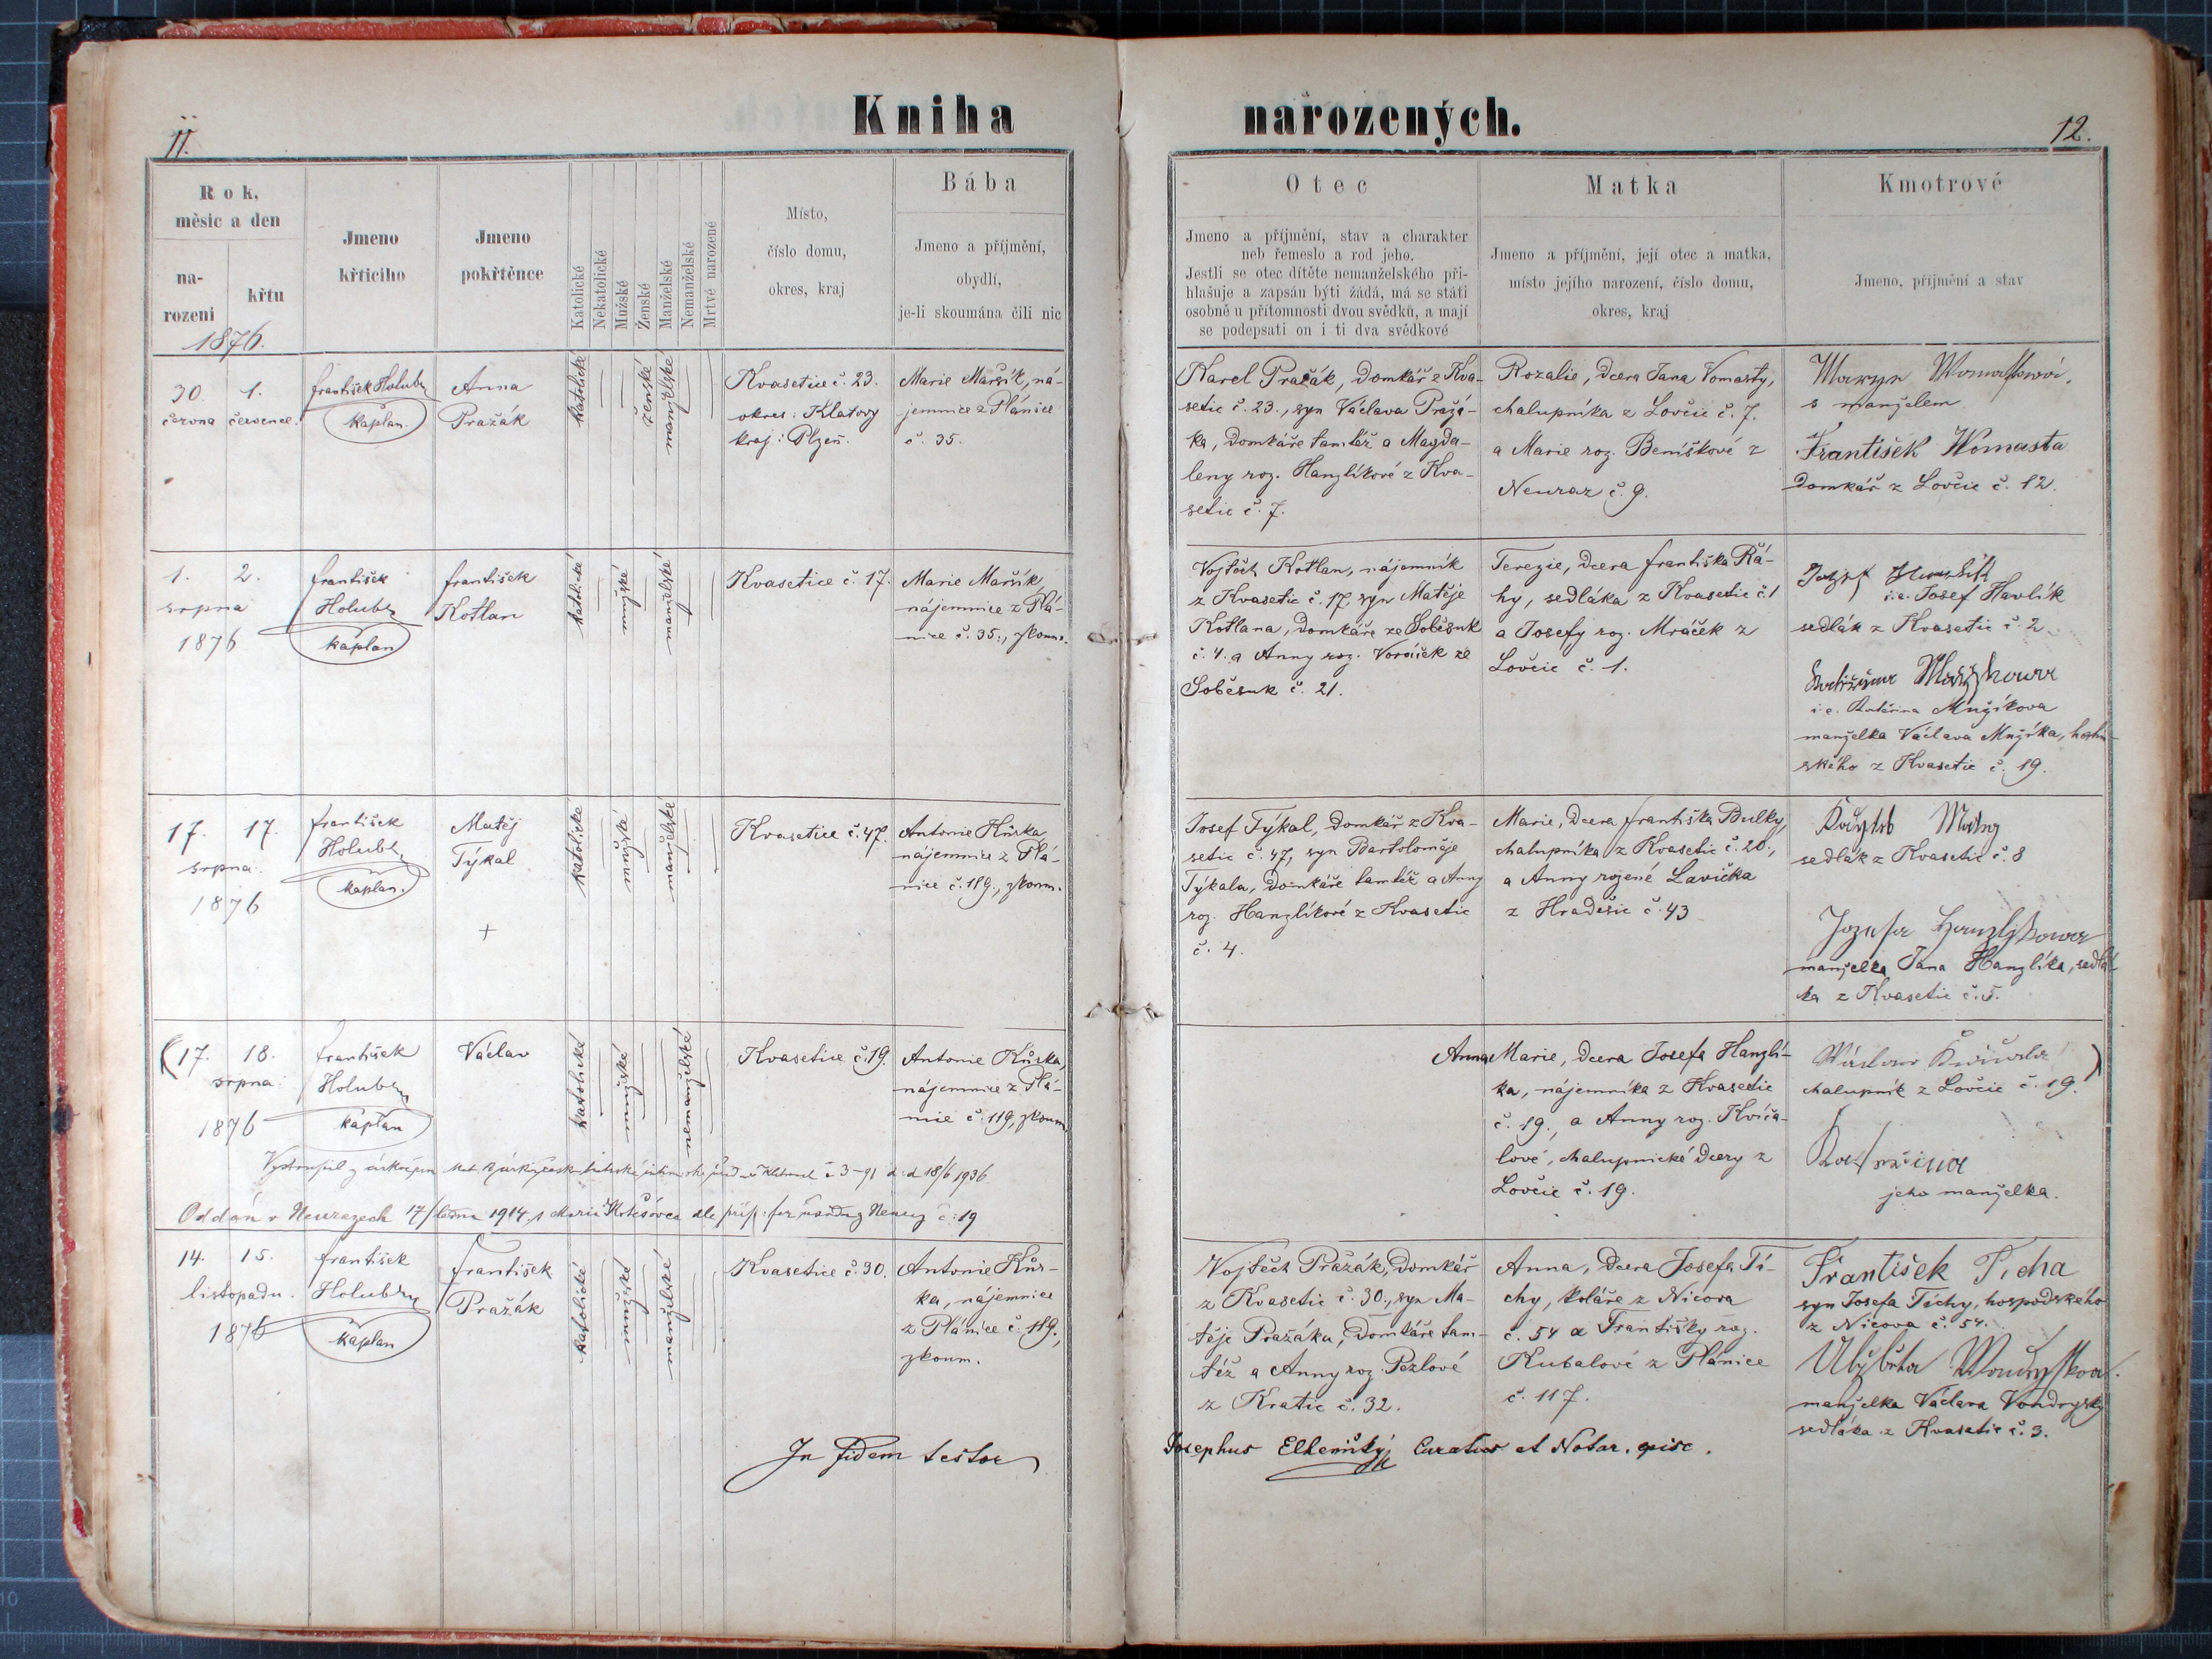 11.
Kniha
Rok,
měsíc a den
na-
rození
křtu
1876.
Jmeno
křticího
Jmeno
pokřtěnce
Katolické
Nekatolické
Mužské
Ženské
Manželské
Nemanželské
Mrtvě narozené
Místo,
číslo domu,
okres, kraj
Bába
Jmeno a příjmění,
obydlí,
je-li skoumána čili nic
30. 1.
června července.
František Holub
kaplan.
Anna
Pražák
katolické
ženské
manželské
Kvasetice č. 23.
okres: Klatovy
kraj: Plzeň.
Marie Maršík, ná-
jemnice z Plánice
č. 35.
1. 2.
srpna
1876
František
Holub
kaplan
František
Kotlan
katolické
mužské
manželské
Kvasetice č. 17.
Marie Maršík,
nájemnice z Plá-
nice č. 35., zkoum.
17. 17.
srpna.
1876
František
Holub
kaplan.
Matěj
Týkal
+
katolické
mužské
manželské
Kvasetice č. 47.
Antonie Kůrka
nájemnice z Plá-
nice č. 119., zkoum.
(17. 18.
srpna.
1876
František
Holub
kaplan
Václav
katolické
mužské
nemanželské
Kvasetice č. 19.
Antonie Kůrka,
nájemnice z Plá-
nice č. 119, zkoum.
Vystoupil z církve č. 3-91 d. d 18/6 1936
Oddán v Neurazech 17/ledna 1914. s Marií dle příp. far. úřadu z Neuraz č. 19
14. 15.
listopadu.
1876
František
Holub
kaplan
František
Pražák
katolické
mužské
manželské
Kvasetice č. 30.
Antonie Kůr-
ka, nájemnice
z Plánice č. 119.,
zkoum.
In fidem testor
narozených.
12.
Otec
Jmeno a příjmění, stav a charakter
neb řemeslo a rod jeho.
Jestli se otec dítěte nemanželského při-
hlašuje a zapsán býti žádá, má se státi
osobně u přítomnosti dvou svědků, a mají
se podepsati on i ti dva svědkové
Matka
Jmeno a příjmění, její otec a matka,
místo jejího narození, číslo domu,
okres, kraj
Kmotrové
Jmeno, příjmění a stav
Karel Pražák, domkář z Kva-
setic č. 23., syn Václava Pražá-
ka, domkáře tamtéž a Magda-
leny roz. Hanzlíkové z Kva-
setic č. 7.
Rozalie, dcera Jana Vomasty,
chalupníka z Lovčic č. 7.
a Marie roz. Beníškové z
Neuraz č. 9.
s manželem
František Womasta
domkář z Lovčic č. 12.
Vojtěch Kotlan, nájemník
z Kvasetic č. 17, syn Matěje
Kotlana, domkáře ze Soběsuk
č. 4. a Anny roz. Voráček ze
Soběsuk č. 21.
Terezie, dcera Františka Ří-
hy, sedláka z Kvasetic č. 1
a Josefy roz. Mráček z
Lovčic č. 1.
i.e. Josef Havlík
sedlák z Kvasetic č. 2.
i.e. Kateřina Mužíkova
manželka Václava Mužíka, hostin-
ského z Kvasetic č. 19.
Josef Týkal, domkář z Kva-
setic č. 47, syn Bartoloměje
Týkala, domkáře tamtéž a Anny
roz. Hanzlíkové z Kvasetic
č. 4.
Marie, dcera Františka Bulky,
chalupníka z Kvasetic č. 20.,
a Anny rozené Lavička
z Hradešic č. 43
sedlák z Kvasetic č. 8
Jozefa Hanzljkowa
manželka Jana Hanzlíka, sedlá-
ka z Kvasetic č. 5.
Anna Marie, dcera Josefa Hanzlí-
ka, nájemníka z Kvasetic
č. 19., a Anny roz. Kvíča-
lové, chalupnické dcery z
Lovčic č. 19.
chalupník z Lovčic č. 19. )
Kateřina
jeho manželka.
Vojtěch Pražák, domkář
z Kvasetic č. 30., syn Ma-
těje Pražáka, domkáře tam-
též a Anny roz. Pezlové
z Kratic č. 32.
Anna, dcera Josefa Ti-
chy, koláře z Nicova
č. 54 a Františky roz.
Kubalové z Plánice
č. 117.
František Ticha
syn Josefa Tichy, hospodského
z Nicova č. 54.
manželka Václava Vondrysky
sedláka z Kvasetic č. 3.
Josephus Elhenický Curatus et Notar. episc.